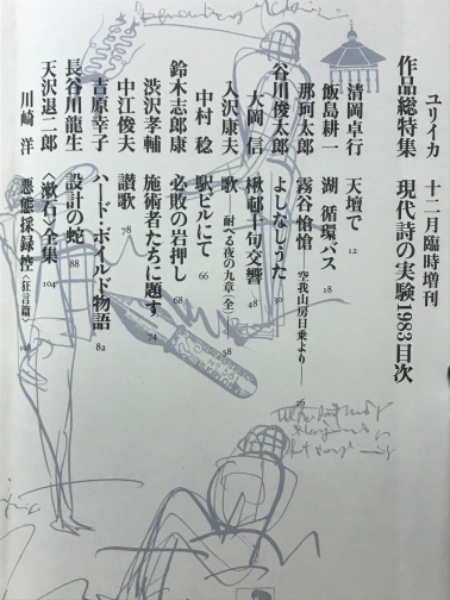 ユリイカ 十二月臨時増刊
作品総特集 現代詩の実験1983目次
清岡卓行 天壇で 12
飯島耕一 湖 循環バス 18
那珂太郎 霧谷愴愴——空我山房日乗より—— 26
谷川俊太郎 よしなしうた 30
大岡信 楸邨十句交響 48
入沢康夫 歌——耐へる夜の九章(全)—— 58
中村稔 駅ビルにて 66
鈴木志郎康 必敗の岩押し 68
渋沢孝輔 施術者たちに題す 74
中江俊夫 讃歌 78
吉原幸子 ハード・ボイルド物語 82
長谷川龍生 設計の蛇 88
天沢退二郎 〈漱石〉全集 104
川崎洋 悪態採録控〈狂言篇〉 108